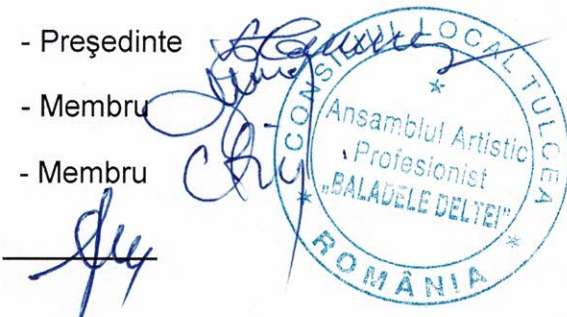 - Președinte
- Membru
- Membru
CONSILIUL LOCAL TULCEA
Ansamblul Artistic
Profesionist
„BALADELE DELTEI”
ROMÂNIA